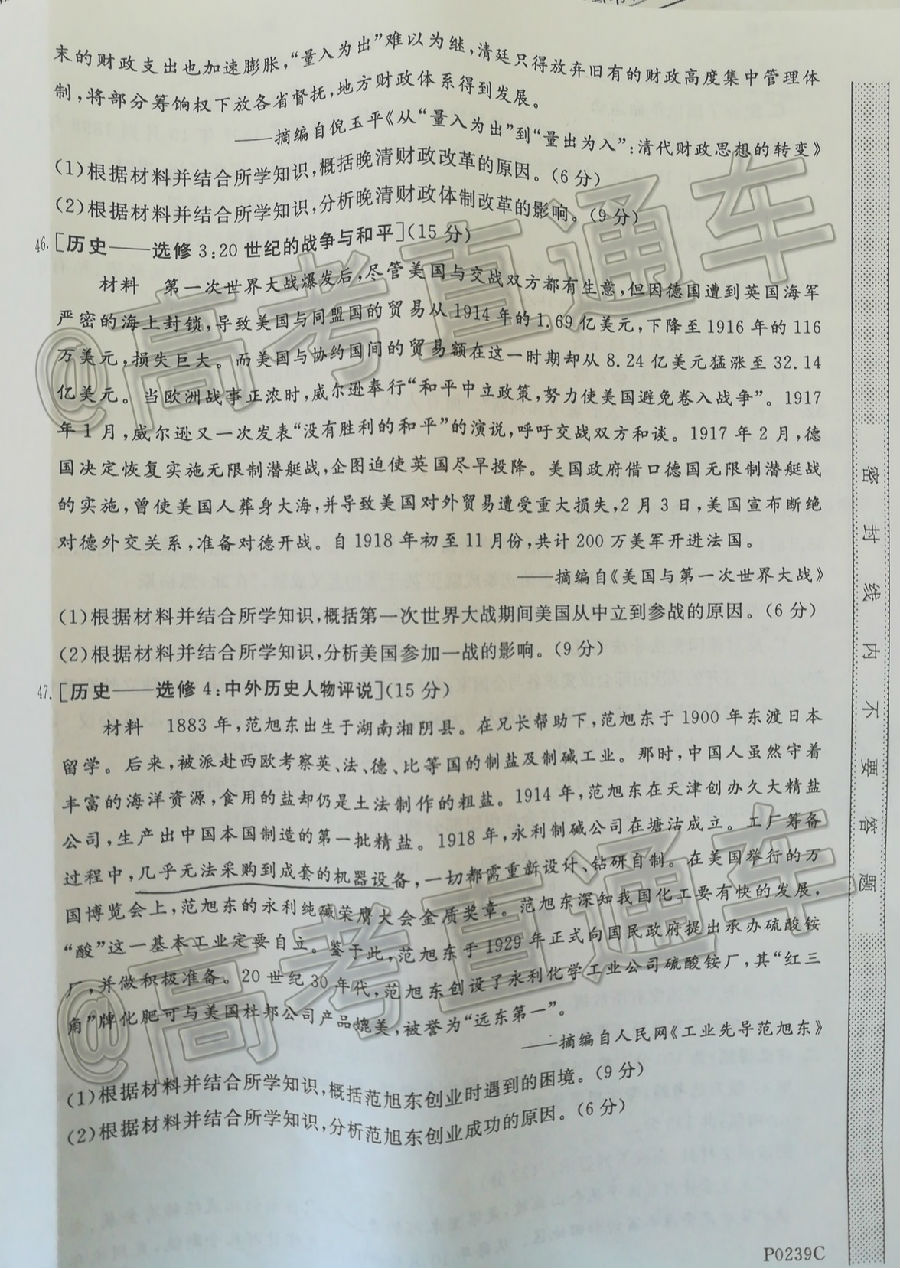 来的财政支出也加速膨胀,“量入为出”难以为继,清廷只得放弃旧有的财政高度集中管理体
制,将部分筹饷权下放各省督抚,地方财政体系得到发展。
——摘编自倪玉平《从“量入为出”到“量出为入”:清代财政思想的转变》
(1)根据材料并结合所学知识,概括晚清财政改革的原因。(6分)
(2)根据材料并结合所学知识,分析晚清财政体制改革的影响。(9分)
46.[历史——选修3:20世纪的战争与和平](15分)
材料 第一次世界大战爆发后,尽管美国与交战双方都有生意,但因德国遭到英国海军
严密的海上封锁,导致美国与同盟国的贸易从1914年的1.69亿美元,下降至1916年的116
万美元,损失巨大。而美国与协约国间的贸易额在这一时期却从8.24亿美元猛涨至32.14
亿美元。当欧洲战事正浓时,威尔逊奉行“和平中立政策,努力使美国避免卷入战争”。1917
年1月,威尔逊又一次发表“没有胜利的和平”的演说,呼吁交战双方和谈。1917年2月,德
国决定恢复实施无限制潜艇战,企图迫使英国尽早投降。美国政府借口德国无限制潜艇战
的实施,曾使美国人葬身大海,并导致美国对外贸易遭受重大损失,2月3日,美国宣布断绝
对德外交关系,准备对德开战。自1918年初至11月份,共计200万美军开进法国。
——摘编自《美国与第一次世界大战》
(1)根据材料并结合所学知识,概括第一次世界大战期间美国从中立到参战的原因。(6分)
(2)根据材料并结合所学知识,分析美国参加一战的影响。(9分)
47.[历史——选修4:中外历史人物评说](15分)
材料 1883年,范旭东出生于湖南湘阴县。在兄长帮助下,范旭东于1900年东渡日本
留学。后来,被派赴西欧考察英、法、德、比等国的制盐及制碱工业。那时,中国人虽然守着
丰富的海洋资源,食用的盐却仍是土法制作的粗盐。1914年,范旭东在天津创办久大精盐
公司,生产出中国本国制造的第一批精盐。1918年,永利制碱公司在塘沽成立。工厂筹备
过程中,几乎无法采购到成套的机器设备,一切都需重新设计、钻研自制。在美国举行的万
国博览会上,范旭东的永利纯碱荣膺大会金质奖章。范旭东深知我国化工要有快的发展,
“酸”这一基本工业定要自立。鉴于此,范旭东于1929年正式向国民政府提出承办硫酸铵
厂,并做积极准备。20世纪30年代,范旭东创设了永利化学工业公司硫酸铵厂,其“红三
角”牌化肥可与美国杜邦公司产品媲美,被誉为“远东第一”。
——摘编自人民网《工业先导范旭东》
(1)根据材料并结合所学知识,概括范旭东创业时遇到的困境。(9分)
(2)根据材料并结合所学知识,分析范旭东创业成功的原因。(6分)
密封线内不要答题
P0239C
@高考直通车
@高考直通车